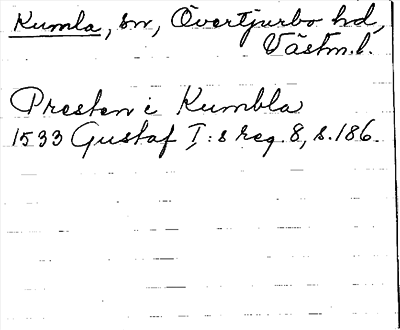 Kumla, sn, Övertjurbo hd,
Västm.l.
Presten i Kumbla
1533 Gustaf I:s reg. 8, s. 186.